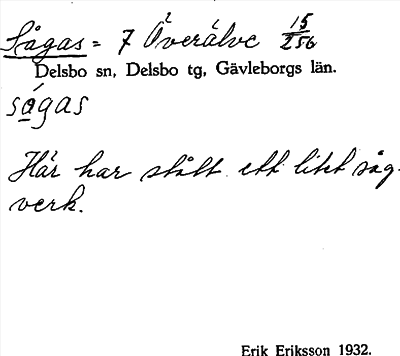 Sågas = 7 Överälve 15/256
Delsbo sn, Delsbo tg, Gävleborgs län.
sågas
Här har stått ett litet såg-
verk.
Erik Eriksson 1932.